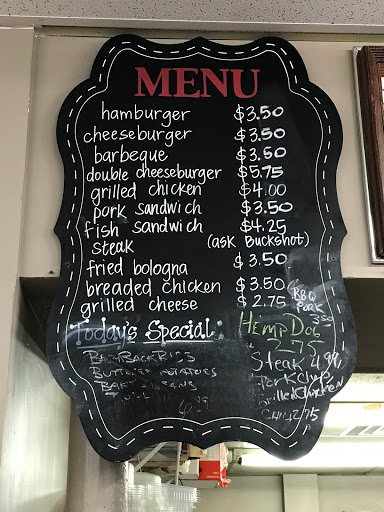 MENU
hamburger $3.50
cheeseburger $3.50
barbeque $3.50
double cheeseburger $5.75
grilled chicken $4.00
pork sandwich $3.50
fish sandwich $4.25
steak (ask Buckshot)
fried bologna $3.50
breaded chicken $3.50
grilled cheese $2.75
BBQ
Pork
350
Today's Special:
HEMP DOG
2.75
BABYBACK RIBS
Steak 4.99
POTATOES
Grilled Chicken